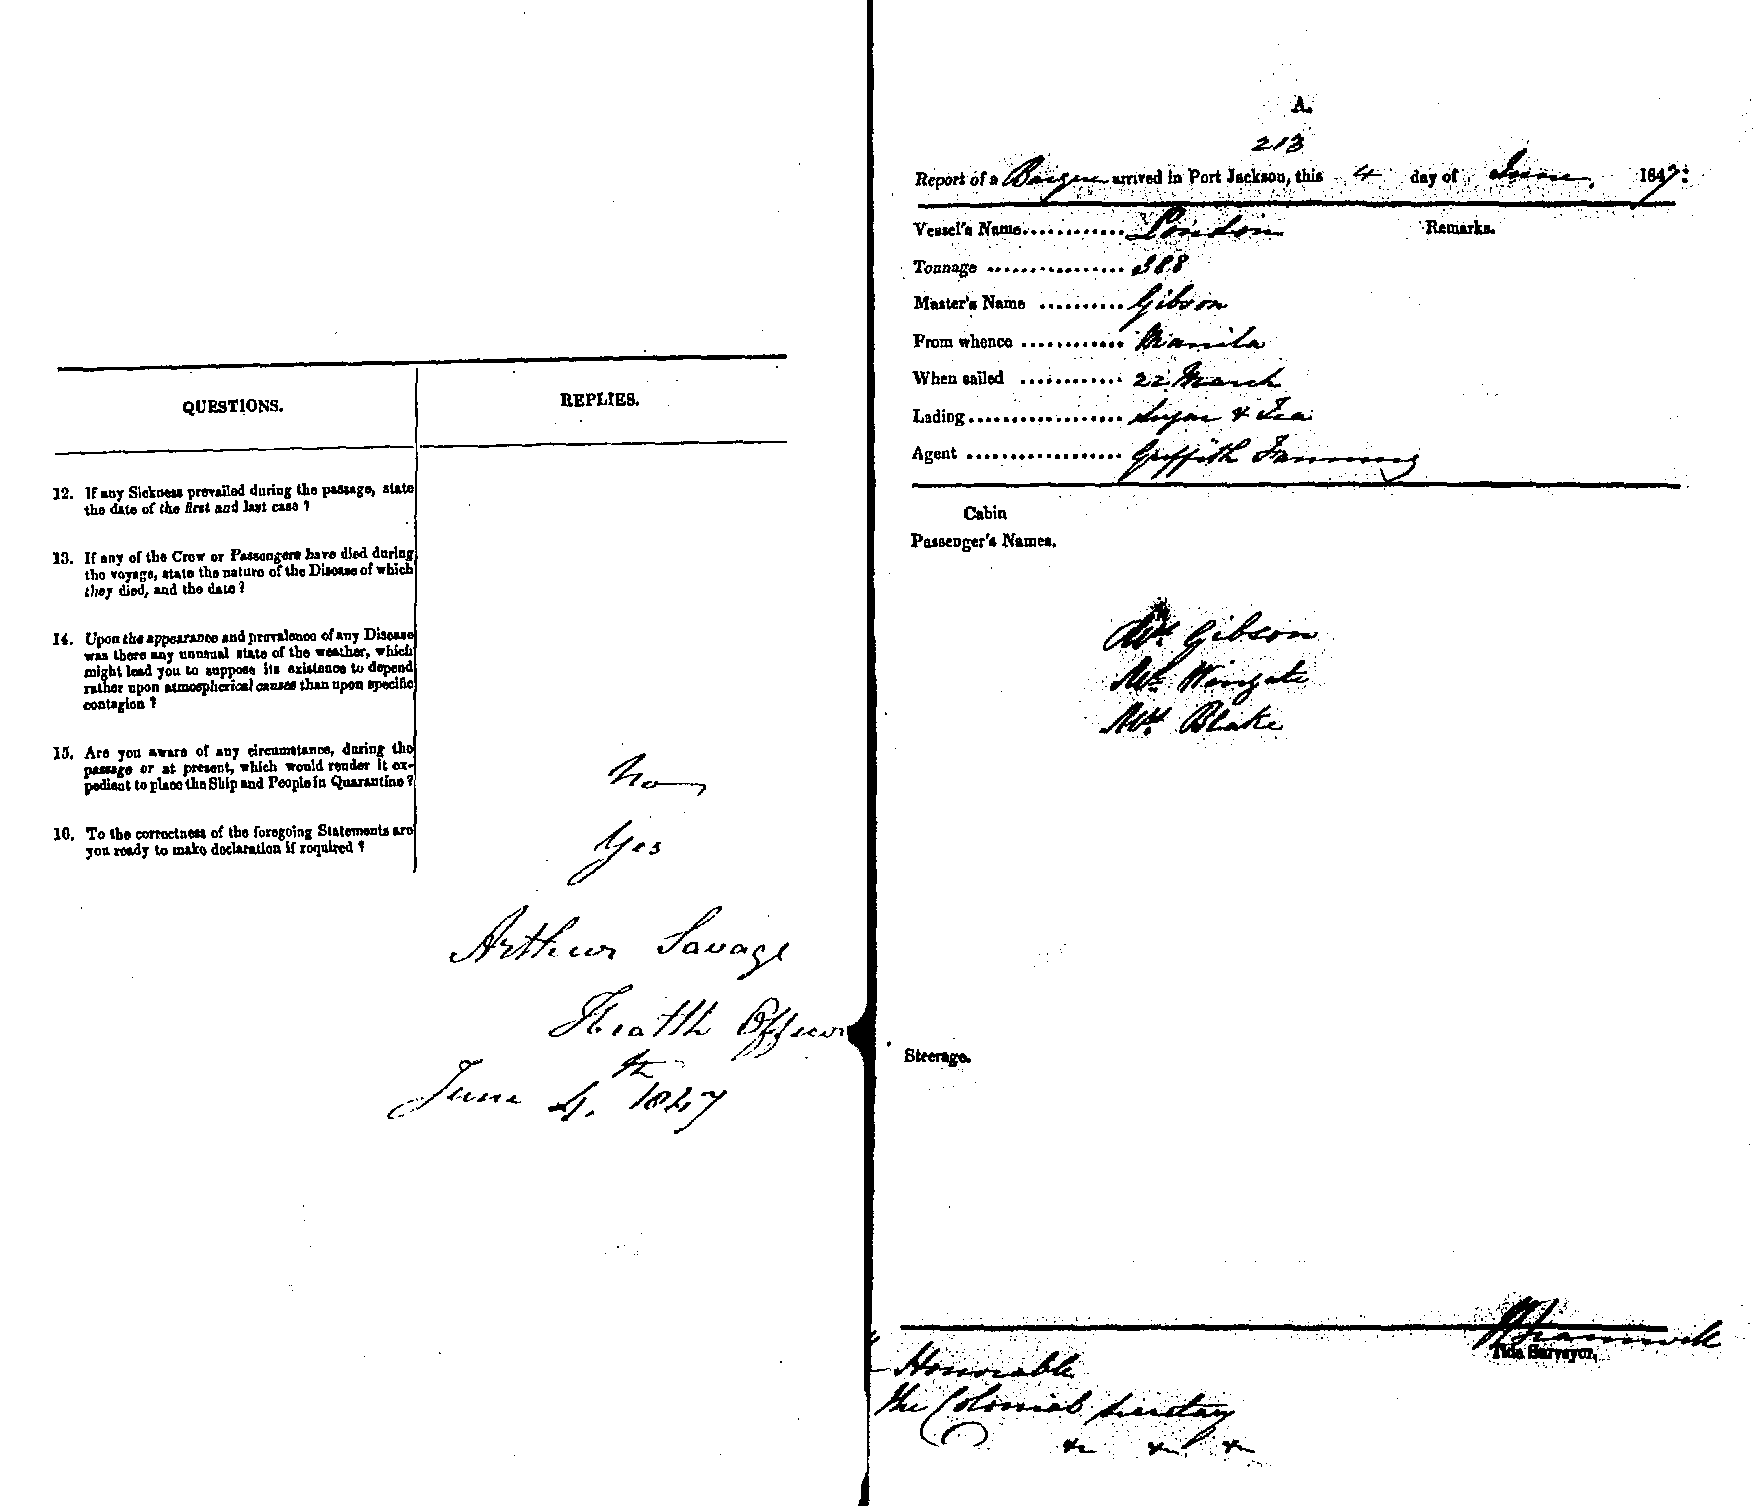 QUESTIONS.
REPLIES.
12. If any Sickness prevailed during the passage, state
the date of the first and last case ?
13. If any of the Crew or Passengers have died during
the voyage, state the nature of the Disease of which
they died, and the date ?
14. Upon the appearance and prevalence of any Disease
was there any unusual state of the weather, which
might lead you to suppose its existence to depend
rather upon atmospherical causes than upon specific
contagion ?
15. Are you aware of any circumstance, during the
passage or at present, which would render it ex-
pedient to place the Ship and People in Quarantine ?
No
16. To the correctness of the foregoing Statements are
you ready to make declaration if required ?
Yes
Arthur Savage
Health Officer
June 4th 1847
A.
213
Report of a Barque arrived in Port Jackson, this 4 day of June, 1847:
Vessel's Name............ London
Remarks.
Tonnage ................ 388
Master's Name .......... Gibson
From whence ............ Manila
When sailed ............ 22 March
Lading.................. Sugar & Tea
Agent .................. Griffith Fanning
Cabin
Passenger's Names.
Mrs. Gibson
Mr. Wingate
Mrs. Blake
Steerage.
Tide Surveyor.
Honorable
The Colonial Secretary
&c &c &c